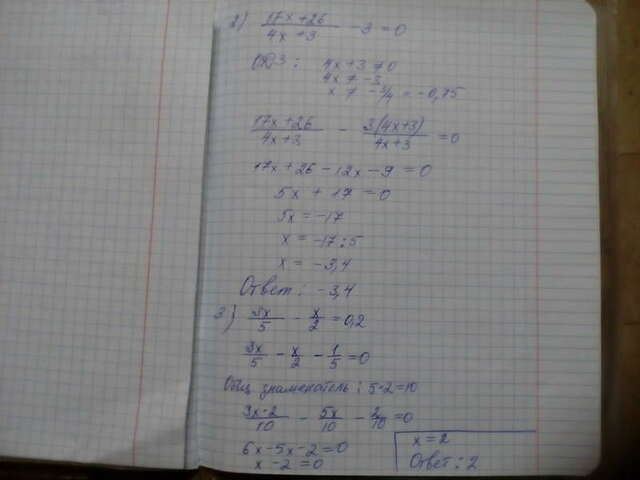 2) (17x+26)/(4x+3) - 3 = 0
ОДЗ: 4x+3 ≠ 0
4x ≠ -3
x ≠ -3/4 = -0,75
(17x+26)/(4x+3) - 3(4x+3)/(4x+3) = 0
17x+26-12x-9=0
5x + 17 = 0
5x = -17
x = -17:5
x = -3,4
Ответ: -3,4
3) 3x/5 - x/2 = 0,2
3x/5 - x/2 - 1/5 = 0
Общ знаменатель: 5·2=10
3x·2/10 - 5x/10 - 2/10 = 0
6x-5x-2=0
x-2=0
x=2
Ответ: 2